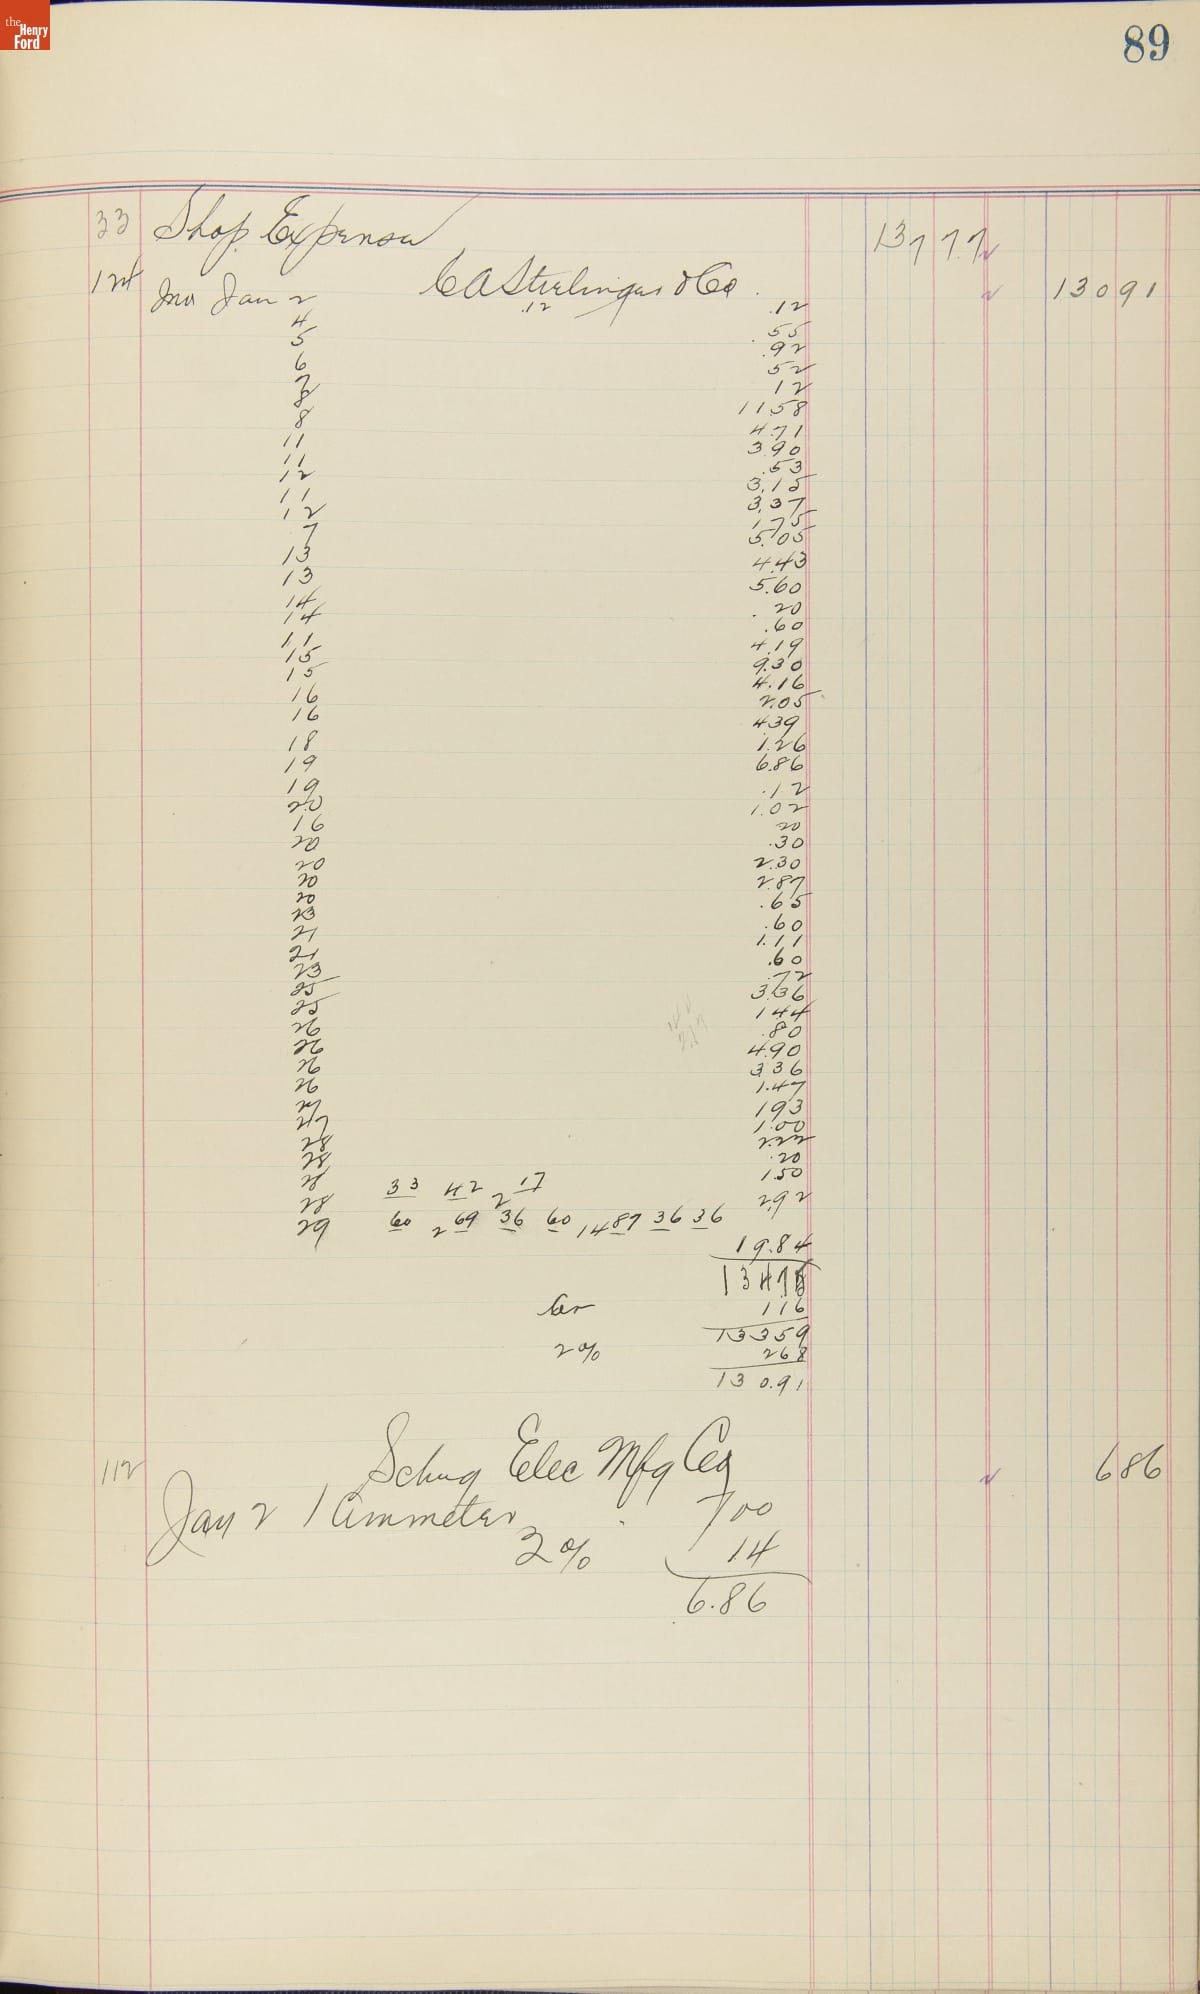 the Henry Ford
89
33 Shop Expense 137 77
124 Inv Jan 2 C A Strelinger & Co 130 91
.12 .12
4 .55
5 .92
6 52
7 12
8 11 58
8 4.71
11 3.90
11 .53
12 3.15
11 3.37
12 1.75
7 5.05
13 4.43
13 5.60
14 .20
14 .60
11 4.19
15 9.30
15 4.16
16 2.05
16 4.39
18 1.26
19 6.86
19 .12
20 1.02
16 20
20 .30
20 2.30
20 2.87
20 .65
23 .60
21 1.11
21 .60
23 .72
25 3.36
25 1 44
26 .80
26 4.90
26 3 36
26 1.47
27 1 93
27 1.00
28 2.22
28 .20
28 1.50
28 33 42 2 17 2.92
29 60 2 69 36 60 14 87 36 36
19.84
134 75
Cr 1 16
133 59
2% 2 68
130.91
112 Schug Elec Mfg Co 6 86
Jan 2 1 Ammeter 7 00
2% 14
6.86